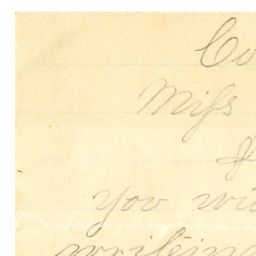 Co
Miss
you wi
writing